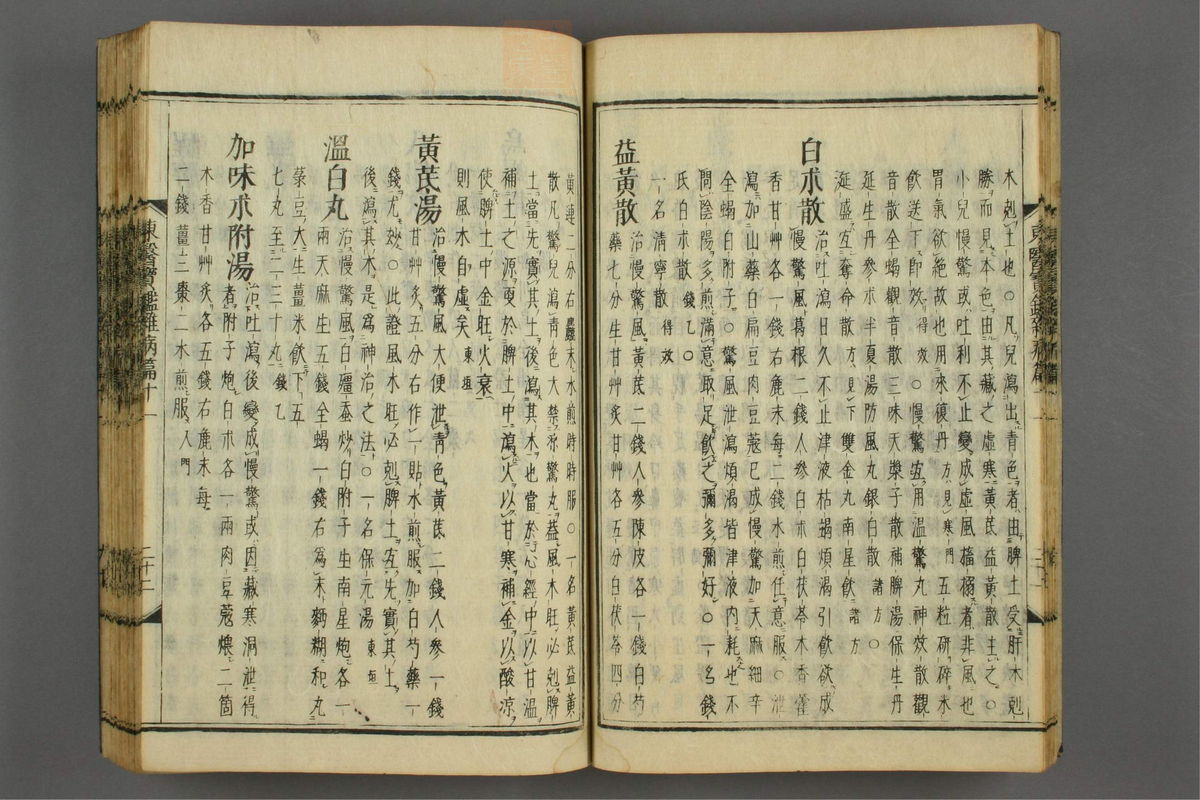 木剋土也○凡兒瀉出青色者由脾土受肝木剋
勝而見本色由其藏之虛寒黃芪益黃散主之○
小兒慢驚或吐利不止變成虛風搐搦者非風也
胃氣欲絶故也用來復丹方見寒門五粒硏碎米
飮送下卽效得效○慢驚宜用溫驚丸神效散觀
音散全蝎觀音散三味天漿子散補脾湯保生丹
延生丹參朮半夏湯防風丸銀白散諸方○
涎盛宜奪命散方見下雙金丸南星飮諸方
白朮散
治吐瀉日久不止津液枯竭煩渴引飮欲成
慢驚風葛根二錢人參白朮白茯苓木香藿
香甘艸各一錢右麁末每二錢水煎任意服○泄
瀉加山藥白扁豆肉豆蔻已成慢驚加天麻細辛
全蝎白附子○驚風泄瀉煩渴皆津液內耗也不
問陰陽多煎滿意取足飮之彌多彌好○一名錢
氏白朮散錢乙○
一名淸寧散得效
益黃散
治慢驚風黃芪二錢人參陳皮各一錢白芍
藥七分生甘艸炙甘艸各五分白茯苓四分
黃連二分右麤末水煎時時服○一名黃芪益黃
散凡驚兒靑色大禁凉驚丸益風木旺必剋脾
土當先實其土後瀉其木也當於心經中以甘溫
補土之源更於脾土中瀉火以甘寒補金以酸凉
使脾土中金旺火衰
則風木自虛矣東垣
黃芪湯
治慢驚風大便泄青色黃芪二錢人參一錢
甘艸炙五分右作一貼水煎服加白芍藥一
錢尤妙○此證風木旺必剋脾土宜先實其土
後瀉其木是爲神治之法○一名保元湯東垣
溫白丸
治慢驚風白殭蚕炒白附子生南星炮各一
兩天麻生五錢全蝎一錢右爲末麪糊和丸
菉豆大生薑米飮下五
七丸至二三十丸錢乙
加味朮附湯
治吐瀉後變成慢驚或因藏寒洞泄得
者附子炮白朮各一兩肉豆蔻煨二箇
木香甘艸炙各五錢右麁末每
二錢薑三棗二水煎服入門
東醫寶鑑雜病篇十一
二十二